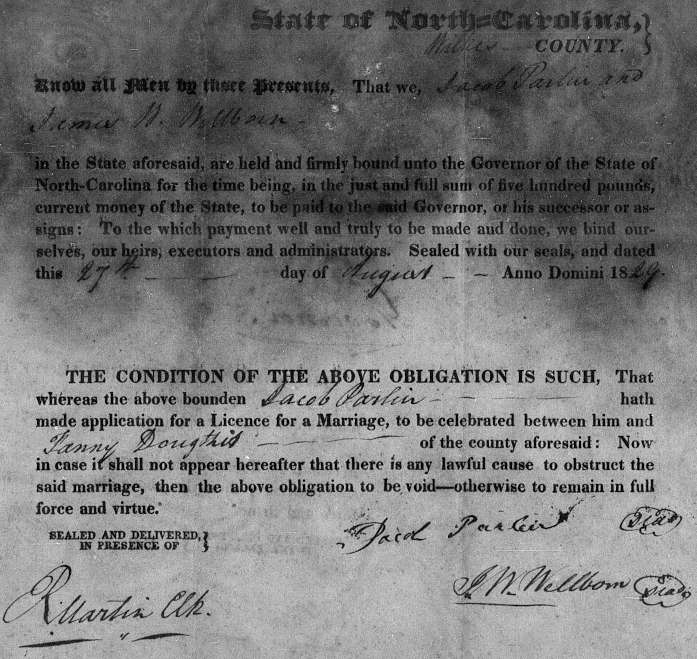 State of North-Carolina,
Wilkes COUNTY.
Know all Men by these Presents, That we, Jacob Parlier and
James W. Wellborn
in the State aforesaid, are held and firmly bound unto the Governor of the State of
North-Carolina for the time being, in the just and full sum of five hundred pounds,
current money of the State, to be paid to the said Governor, or his successor or as-
signs: To the which payment well and truly to be made and done, we bind our-
selves, our heirs, executors and administrators. Sealed with our seals, and dated
this 27th day of August Anno Domini 1829.
THE CONDITION OF THE ABOVE OBLIGATION IS SUCH, That
whereas the above bounden Jacob Parlier hath
made application for a Licence for a Marriage, to be celebrated between him and
Fanny of the county aforesaid: Now
in case it shall not appear hereafter that there is any lawful cause to obstruct the
said marriage, then the above obligation to be void—otherwise to remain in full
force and virtue.
SEALED AND DELIVERED,
IN PRESENCE OF
Jacob Parlier (Seal)
J. W. Wellborn (Seal)
R. Martin Clk.